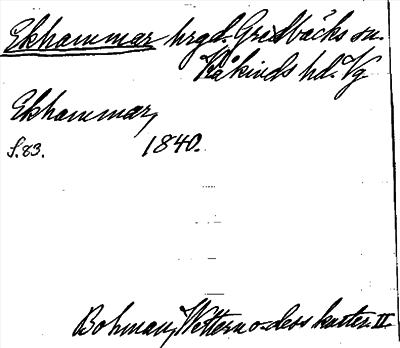 Ekhammar hrgd. Gredbäcks sn.
Kåkinds hd. Vg
Ekhammar,
s. 83. 1840.
Bohman, Wettern o. dess kuster. II.